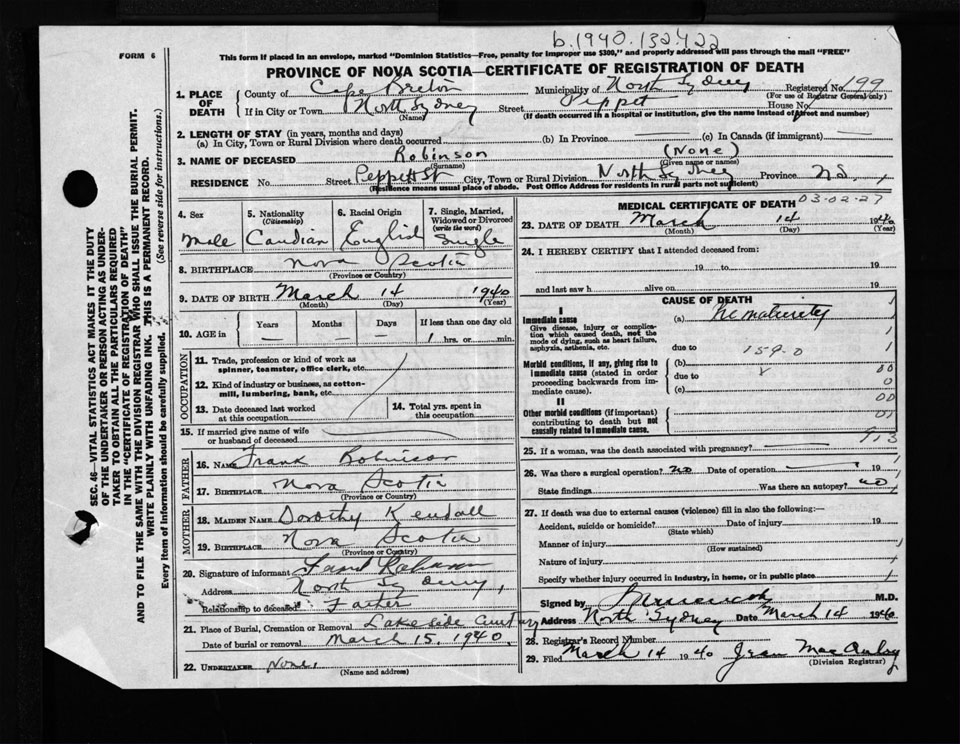 b.1940.132422
FORM 6
This form if placed in an envelope, marked "Dominion Statistics—Free, penalty for improper use $300," and properly addressed will pass through the mail "FREE"
PROVINCE OF NOVA SCOTIA—CERTIFICATE OF REGISTRATION OF DEATH
1. PLACE OF DEATH
County of Cape Breton Municipality of North Sydney Registered No. 199
(For use of Registrar General only)
If in City or Town North Sydney Street Peppet House No.
(Name) (If death occurred in a hospital or institution, give the name instead of street and number)
2. LENGTH OF STAY (in years, months and days)
(a) In City, Town or Rural Division where death occurred (b) In Province (c) In Canada (if immigrant)
3. NAME OF DECEASED Robinson (None)
(Surname) (Given name or names)
RESIDENCE No. Street Peppett St City, Town or Rural Division North Sydney Province NS
(Residence means usual place of abode. Post Office Address for residents in rural parts not sufficient)
4. Sex
Male
5. Nationality
(Citizenship)
Candian
6. Racial Origin
English
7. Single, Married, Widowed or Divorced
(write the word)
Single
8. BIRTHPLACE Nova Scotia
(Province or Country)
9. DATE OF BIRTH March 14 1940
(Month) (Day) (Year)
10. AGE in Years Months Days If less than one day old
— — 1 hrs. or min.
OCCUPATION
11. Trade, profession or kind of work as spinner, teamster, office clerk, etc.
12. Kind of industry or business, as cotton-mill, lumbering, bank, etc.
13. Date deceased last worked at this occupation
14. Total yrs. spent in this occupation
15. If married give name of wife or husband of deceased
FATHER
16. NAME Frank Robinson
17. BIRTHPLACE Nova Scotia
(Province or Country)
MOTHER
18. MAIDEN NAME Dorothy Kendall
19. BIRTHPLACE Nova Scotia
(Province or Country)
20. Signature of informant
Address North Sydney,
Relationship to deceased Father
21. Place of Burial, Cremation or Removal Lakeside
Date of burial or removal March 15, 1940.
22. UNDERTAKER None,
(Name and address)
MEDICAL CERTIFICATE OF DEATH
03-02-27
23. DATE OF DEATH March 14 1940
(Month) (Day) (Year)
24. I HEREBY CERTIFY that I attended deceased from:
19 to 19
and last saw h alive on 19
CAUSE OF DEATH
I
Immediate cause (a) Prematurity
Give disease, injury or complication which caused death, not the mode of dying, such as heart failure, asphyxia, asthenia, etc.
due to 159.0
Morbid conditions, if any, giving rise to immediate cause (stated in order proceeding backwards from immediate cause).
(b)
due to
(c)
II
Other morbid conditions (if important) contributing to death but not causally related to immediate cause.
25. If a woman, was the death associated with pregnancy?
26. Was there a surgical operation? No Date of operation 19
State findings Was there an autopsy? No
27. If death was due to external causes (violence) fill in also the following:—
Accident, suicide or homicide? Date of injury 19
(State which)
Manner of injury
(How sustained)
Nature of injury
Specify whether injury occurred in industry, in home, or in public place
Signed by M.D.
Address North Sydney Date March 14 1940
28. Registrar's Record Number
29. Filed March 14 1940
(Division Registrar)
SEC. 46—VITAL STATISTICS ACT MAKES IT THE DUTY
OF THE UNDERTAKER OR PERSON ACTING AS UNDERTAKER TO OBTAIN ALL THE PARTICULARS REQUIRED
IN THE "CERTIFICATE OF REGISTRATION OF DEATH"
AND TO FILE THE SAME WITH THE DIVISION REGISTRAR WHO SHALL ISSUE THE BURIAL PERMIT.
WRITE PLAINLY WITH UNFADING INK. THIS IS A PERMANENT RECORD.
Every item of information should be carefully supplied. (See reverse side for instructions.)